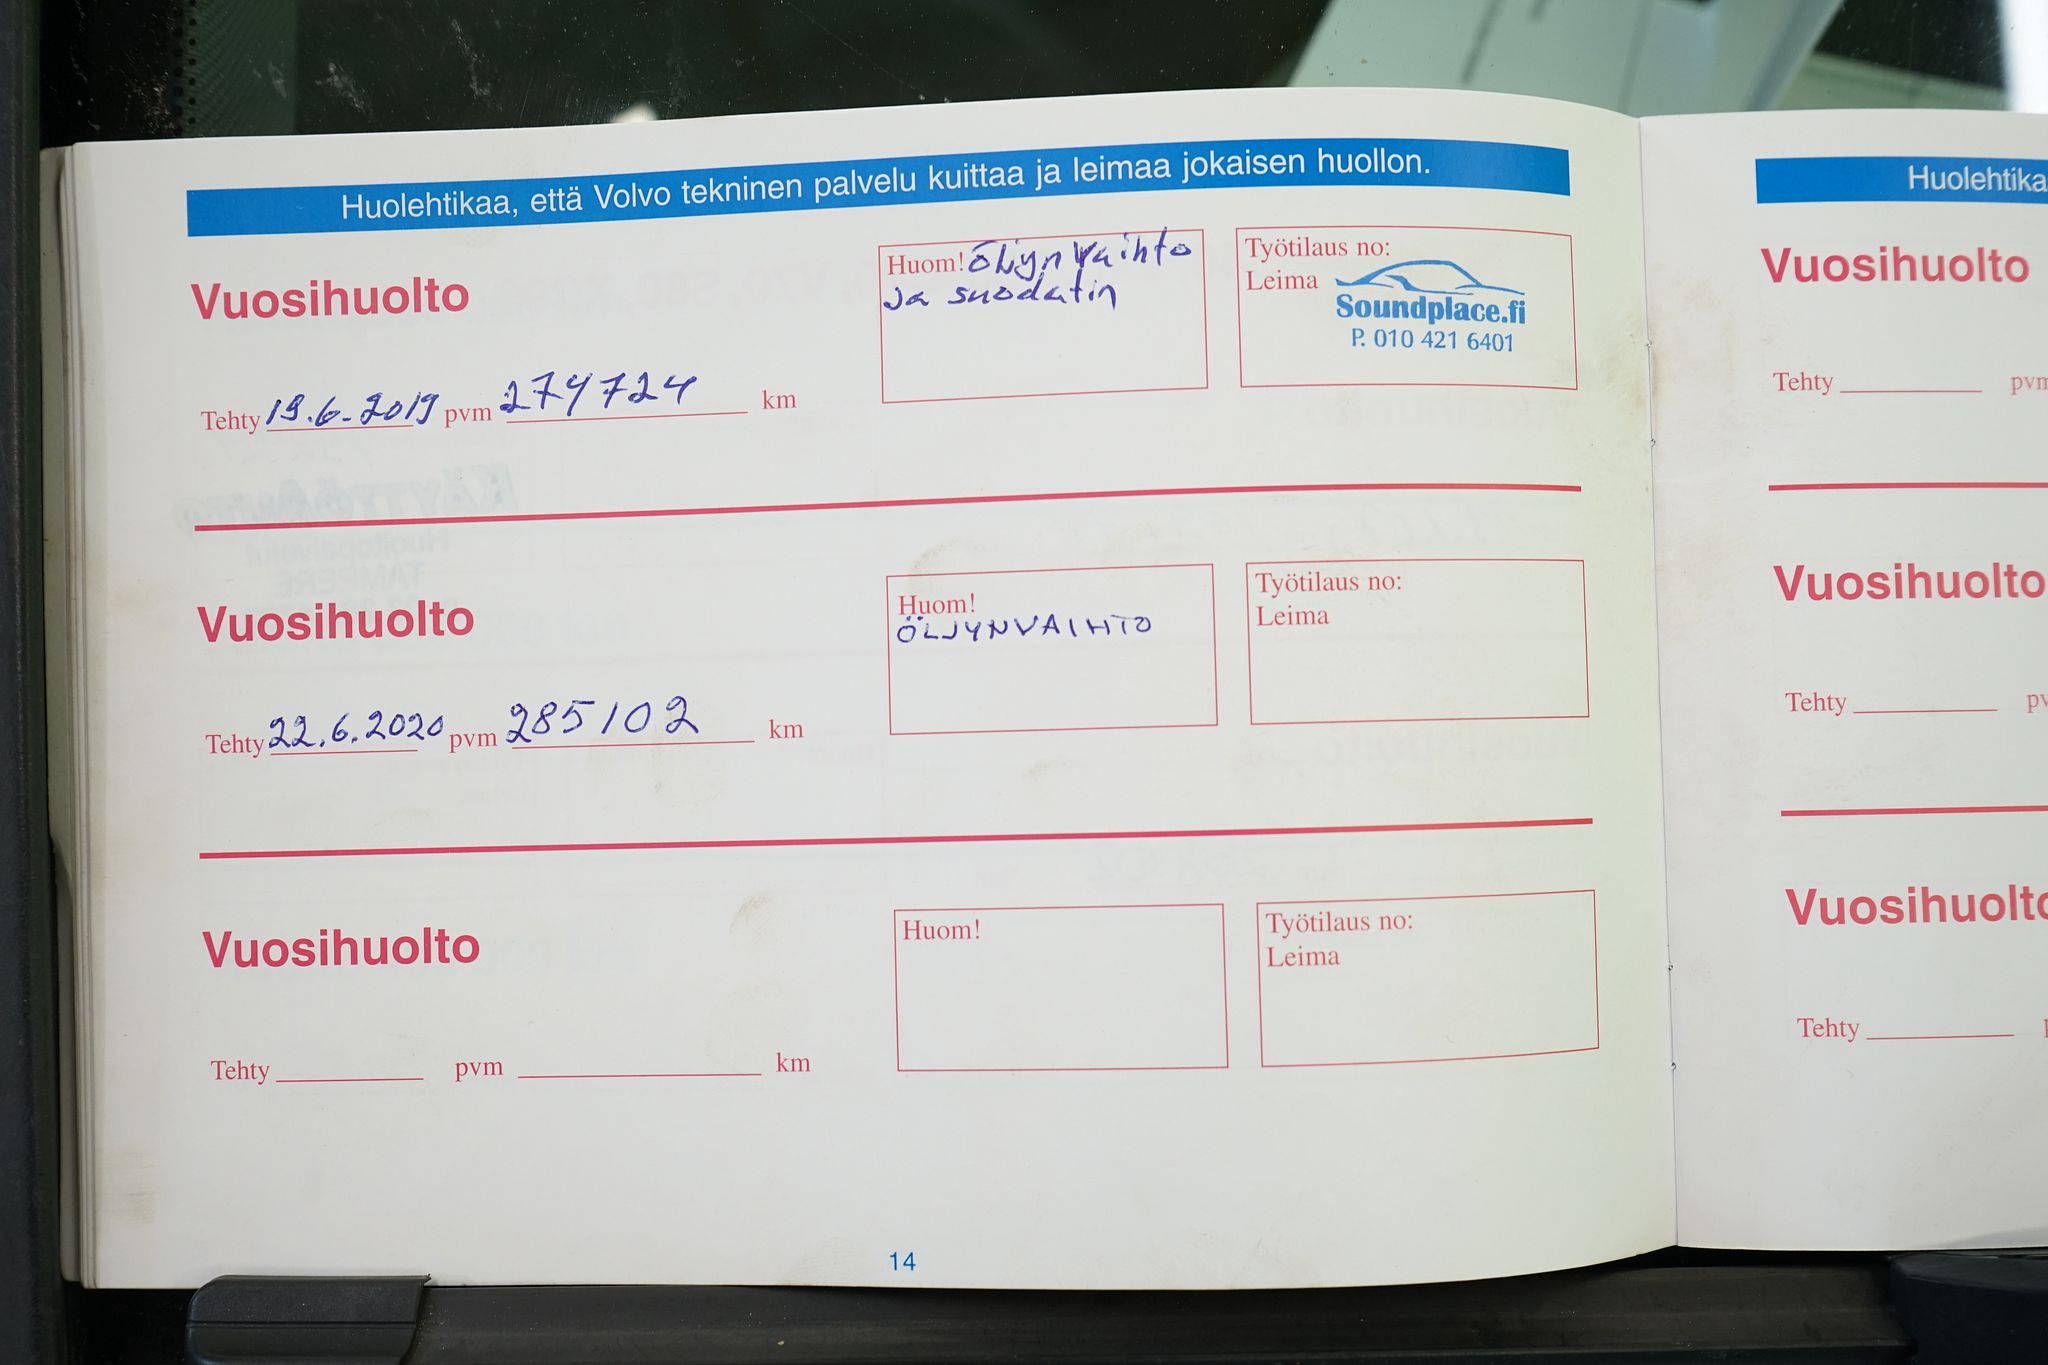 Huolehtikaa, että Volvo tekninen palvelu kuittaa ja leimaa jokaisen huollon.
Vuosihuolto
Huom! Öljynvaihto
ja suodatin
Työtilaus no:
Leima
Soundplace.fi
P. 010 421 6401
Tehty 19.6.2019 pvm 274724 km
Vuosihuolto
Huom!
ÖLJYNVAIHTO
Työtilaus no:
Leima
Tehty 22.6.2020 pvm 285102 km
Vuosihuolto
Huom!
Työtilaus no:
Leima
Tehty pvm km
14
Huolehtika
Vuosihuolto
Tehty pvm
Vuosihuolto
Tehty
Vuosihuolto
Tehty